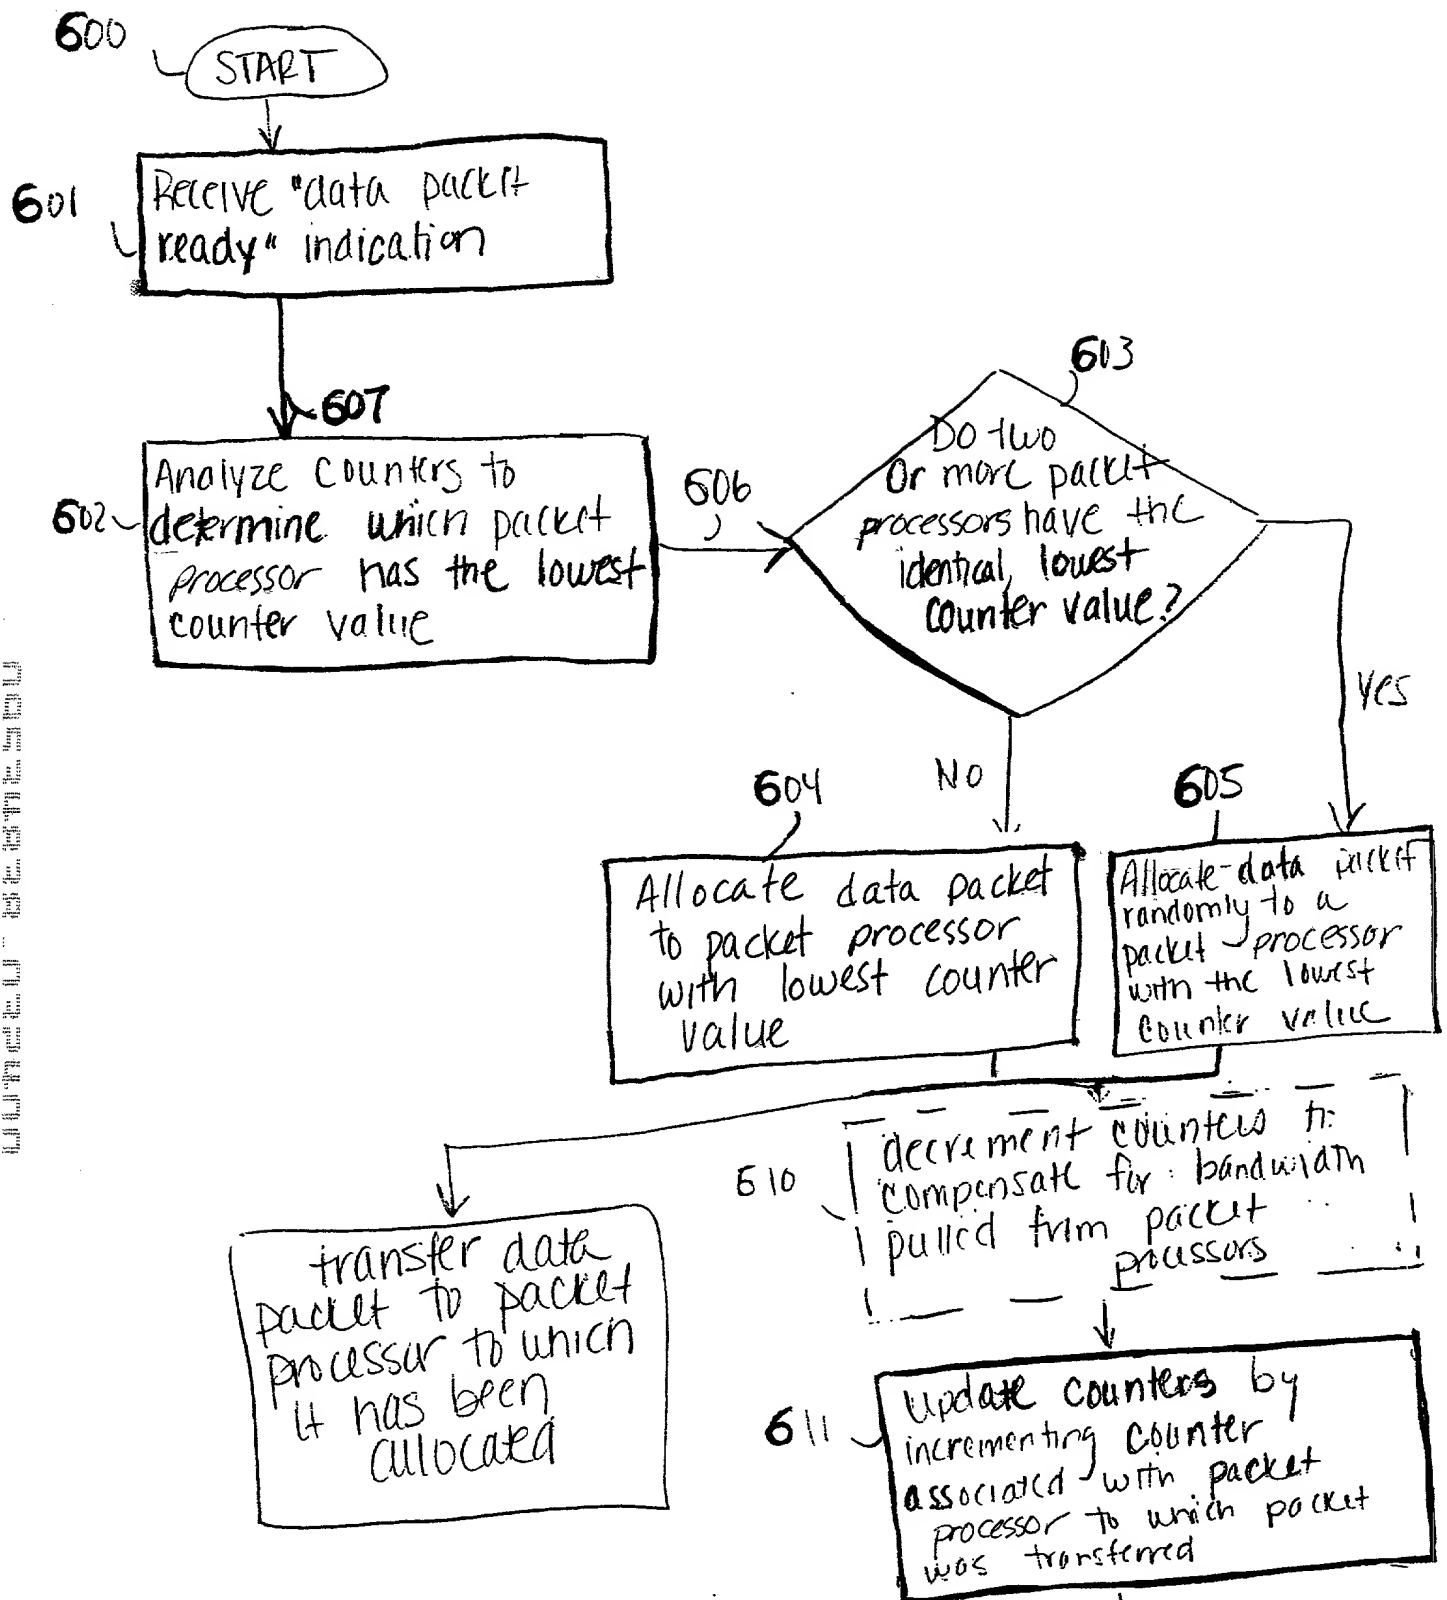 600
START
601
Receive "data packet
ready" indication
607
602
Analyze counters to
determine which packet
processor has the lowest
counter value
606
603
Do two
Or more packet
processors have the
identical, lowest
counter value?
Yes
No
604
Allocate data packet
to packet processor
with lowest counter
value
605
Allocate data packet
randomly to a
packet processor
with the lowest
counter value
610
decrement counters to
compensate for bandwidth
pulled from packet
processors
transfer data
packet to packet
processor to which
it has been
allocated
611
update counters by
incrementing counter
associated with packet
processor to which packet
was transferred